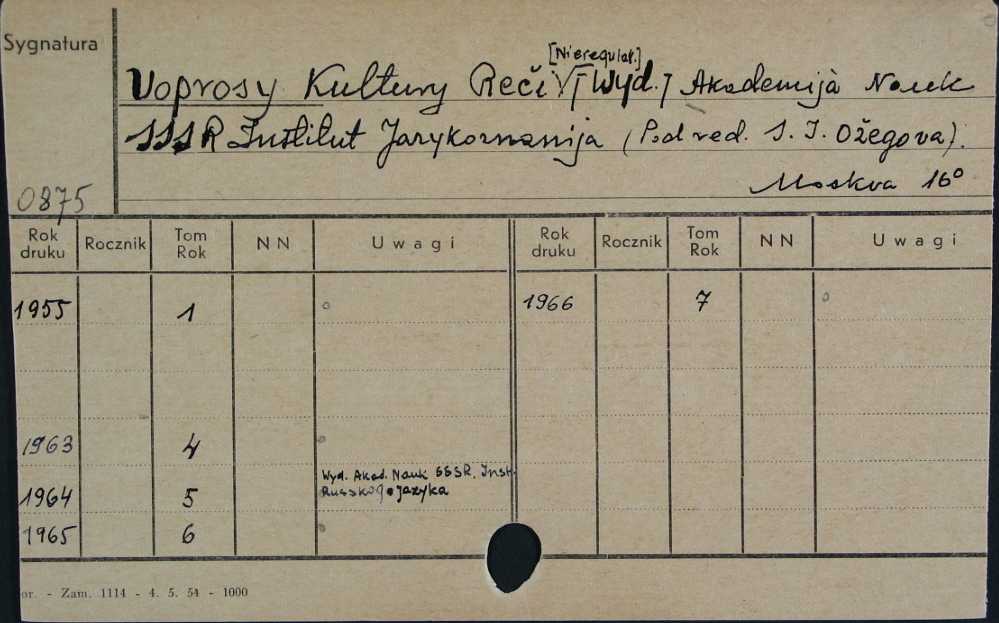 Sygnatura
[Nieregular.]
Voprosy Kultury Reči [Wyd.] Akademijà Nauk
SSSR Institut Jazykoznanija (Pod red. S. I. Ožegova).
Moskva 16°
0875
Rok druku Rocznik Tom Rok NN Uwagi Rok druku Rocznik Tom Rok NN Uwagi
1955 1 1966 7
1963 4
Wyd. Akad. Nauk SSSR. Inst.
1964 5 Russkogo Jazyka
1965 6
or. - Zam. 1114 - 4. 5. 54 - 1000